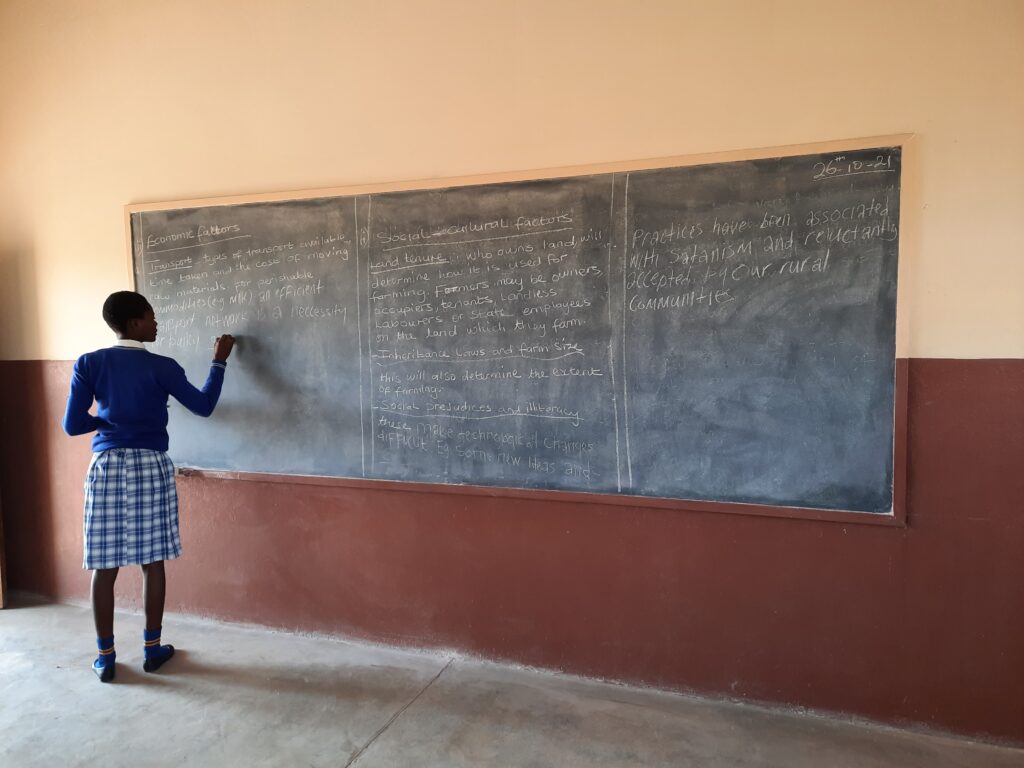 26th-10-21
Economic factors
Transport types of transport available,
time taken and the cost of moving
raw materials for perishable
commodities (eg milk) an efficient
transport network is a neccessity
for bulky
Social - cultural factors
Land tenure: who owns land, will
determine how it is used for
farming. Farmers may be owners,
occupiers, tenants, Landless
Labourers or State employees
on the land which they farm
- Inheritance Laws and farm size
this will also determine the extent
of farming.
- Social prejudices and illiteracy
these make technological changes
difficult Eg Some new Ideas and
Practices have been associated
with Satanism and reluctantly
accepted by our rural
communities